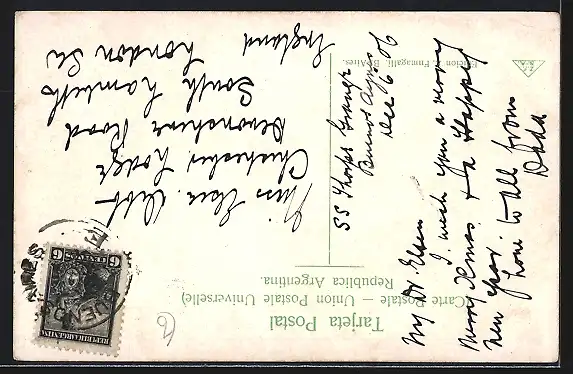 Tarjeta Postal
Carte Postale — Union Postale Universelle)
Republica Argentina.
6
REPUBLICA ARGENTINA
BUENOS AIRES
Miss Elsie
Chichester Lodge
Devonshire Road
South Lambeth
London SW
England
SS Thorpe Grange
Buenos Ayres
Dec 6 06
My Dr Elsie
I wish you a merry
Merry Xmas & a Happy
New year.
love to all from
Dada
Edicion J. Fumagalli. Bs-Aires.